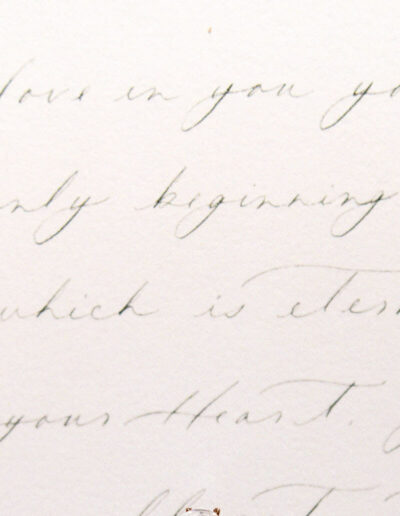 love in you yo
nly beginning
which is etern
your Heart.